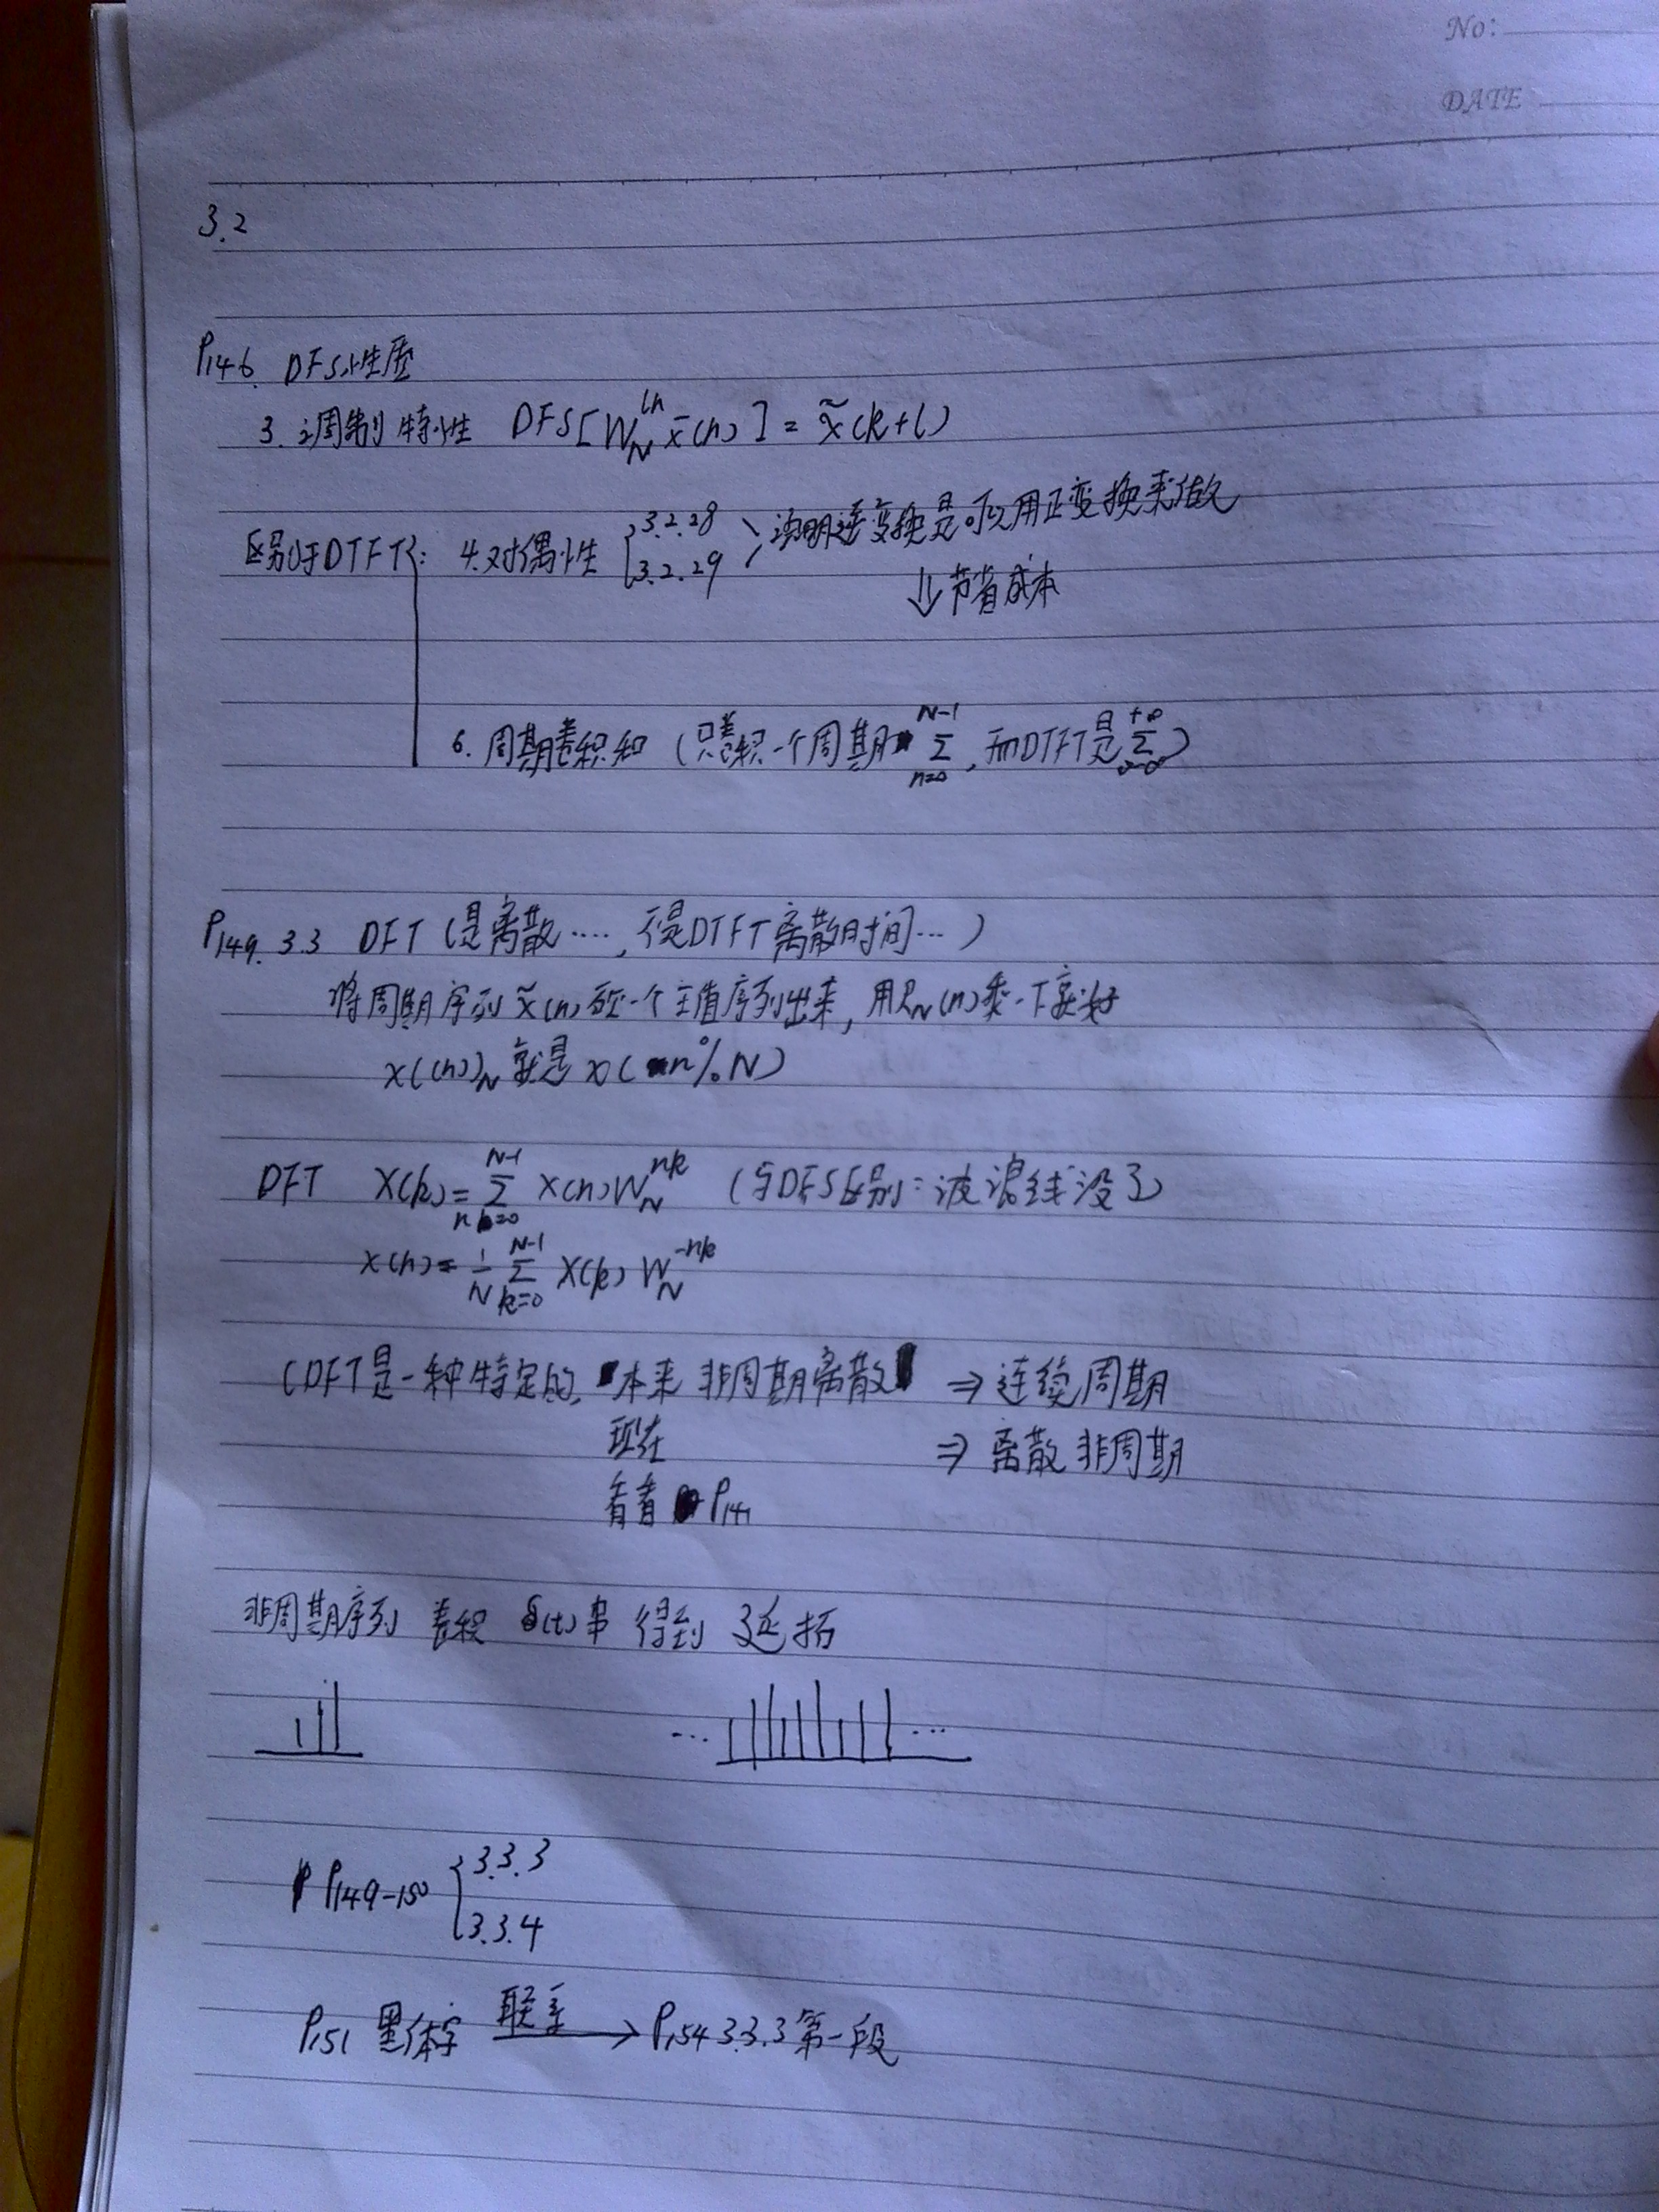 No:
DATE
3.2
P146. DFS性质
3. 调制特性 DFS[W_N^{ln} x̃(n)] = X̃(k+l)
区别于DTFT{: 4.对偶性 {3.2.28 3.2.29} 说明逆变换是可以用正变换来做
↓节省成本
6. 周期卷积和 (只卷积一个周期 Σ_{n=0}^{N-1}, 而DTFT是 Σ_{-∞}^{+∞})
P149. 3.3 DFT (是离散...., 不是DTFT 离散时间...)
将周期序列 x̃(n) 取一个主值序列出来, 用R_N(n)乘一下就好
x((n))_N 就是 x(n%N)
DFT X(k) = Σ_{n=0}^{N-1} x(n) W_N^{nk} (与DFS区别:波浪线没了)
x(n) = 1/N Σ_{k=0}^{N-1} X(k) W_N^{-nk}
(DFT是一种特定的, 本来 非周期离散 ⇒ 连续周期
现在 ⇒ 离散非周期
看看 P141
非周期序列 卷积 δ(t)串 得到 延拓
... ...
P149-150 {3.3.3
3.3.4
P151 黑体字 联系→ P154 3.3.3 第一段